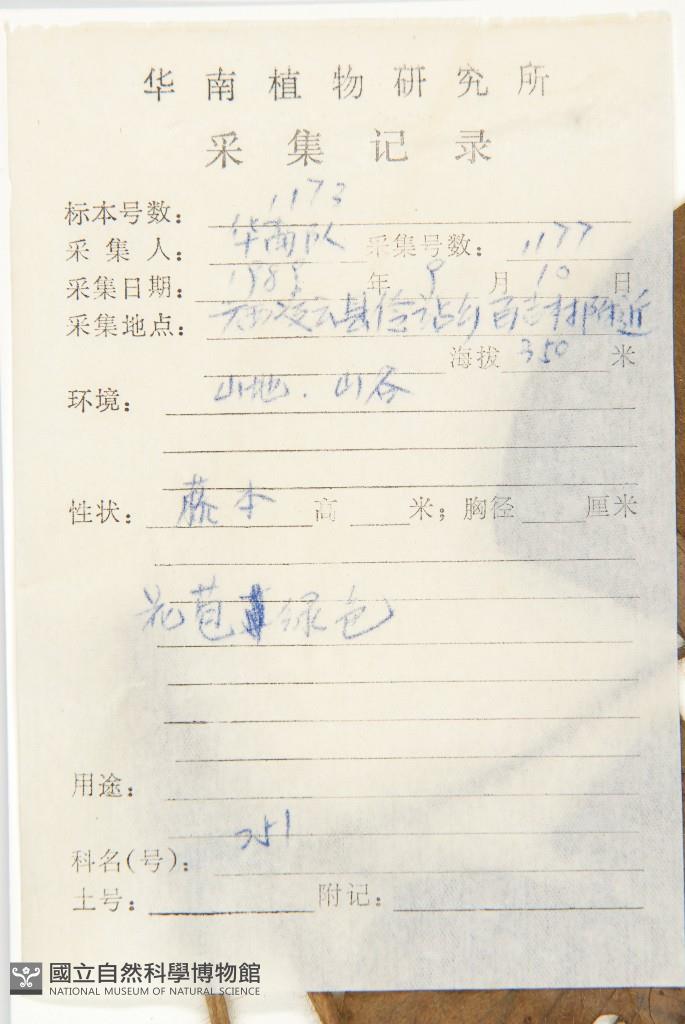 华南植物研究所
采集记录
标本号数: 1173
采集人: 华南队 采集号数: 1177
采集日期: 1989 年 9 月 10 日
采集地点: 凌云县伶站乡百吉村附近
海拔 350 米
环境: 山地.山谷
性状: 藤本 高 米; 胸径 厘米
花苞绿色
用途:
科名(号): 251
土号: 附记:
國立自然科學博物館
NATIONAL MUSEUM OF NATURAL SCIENCE